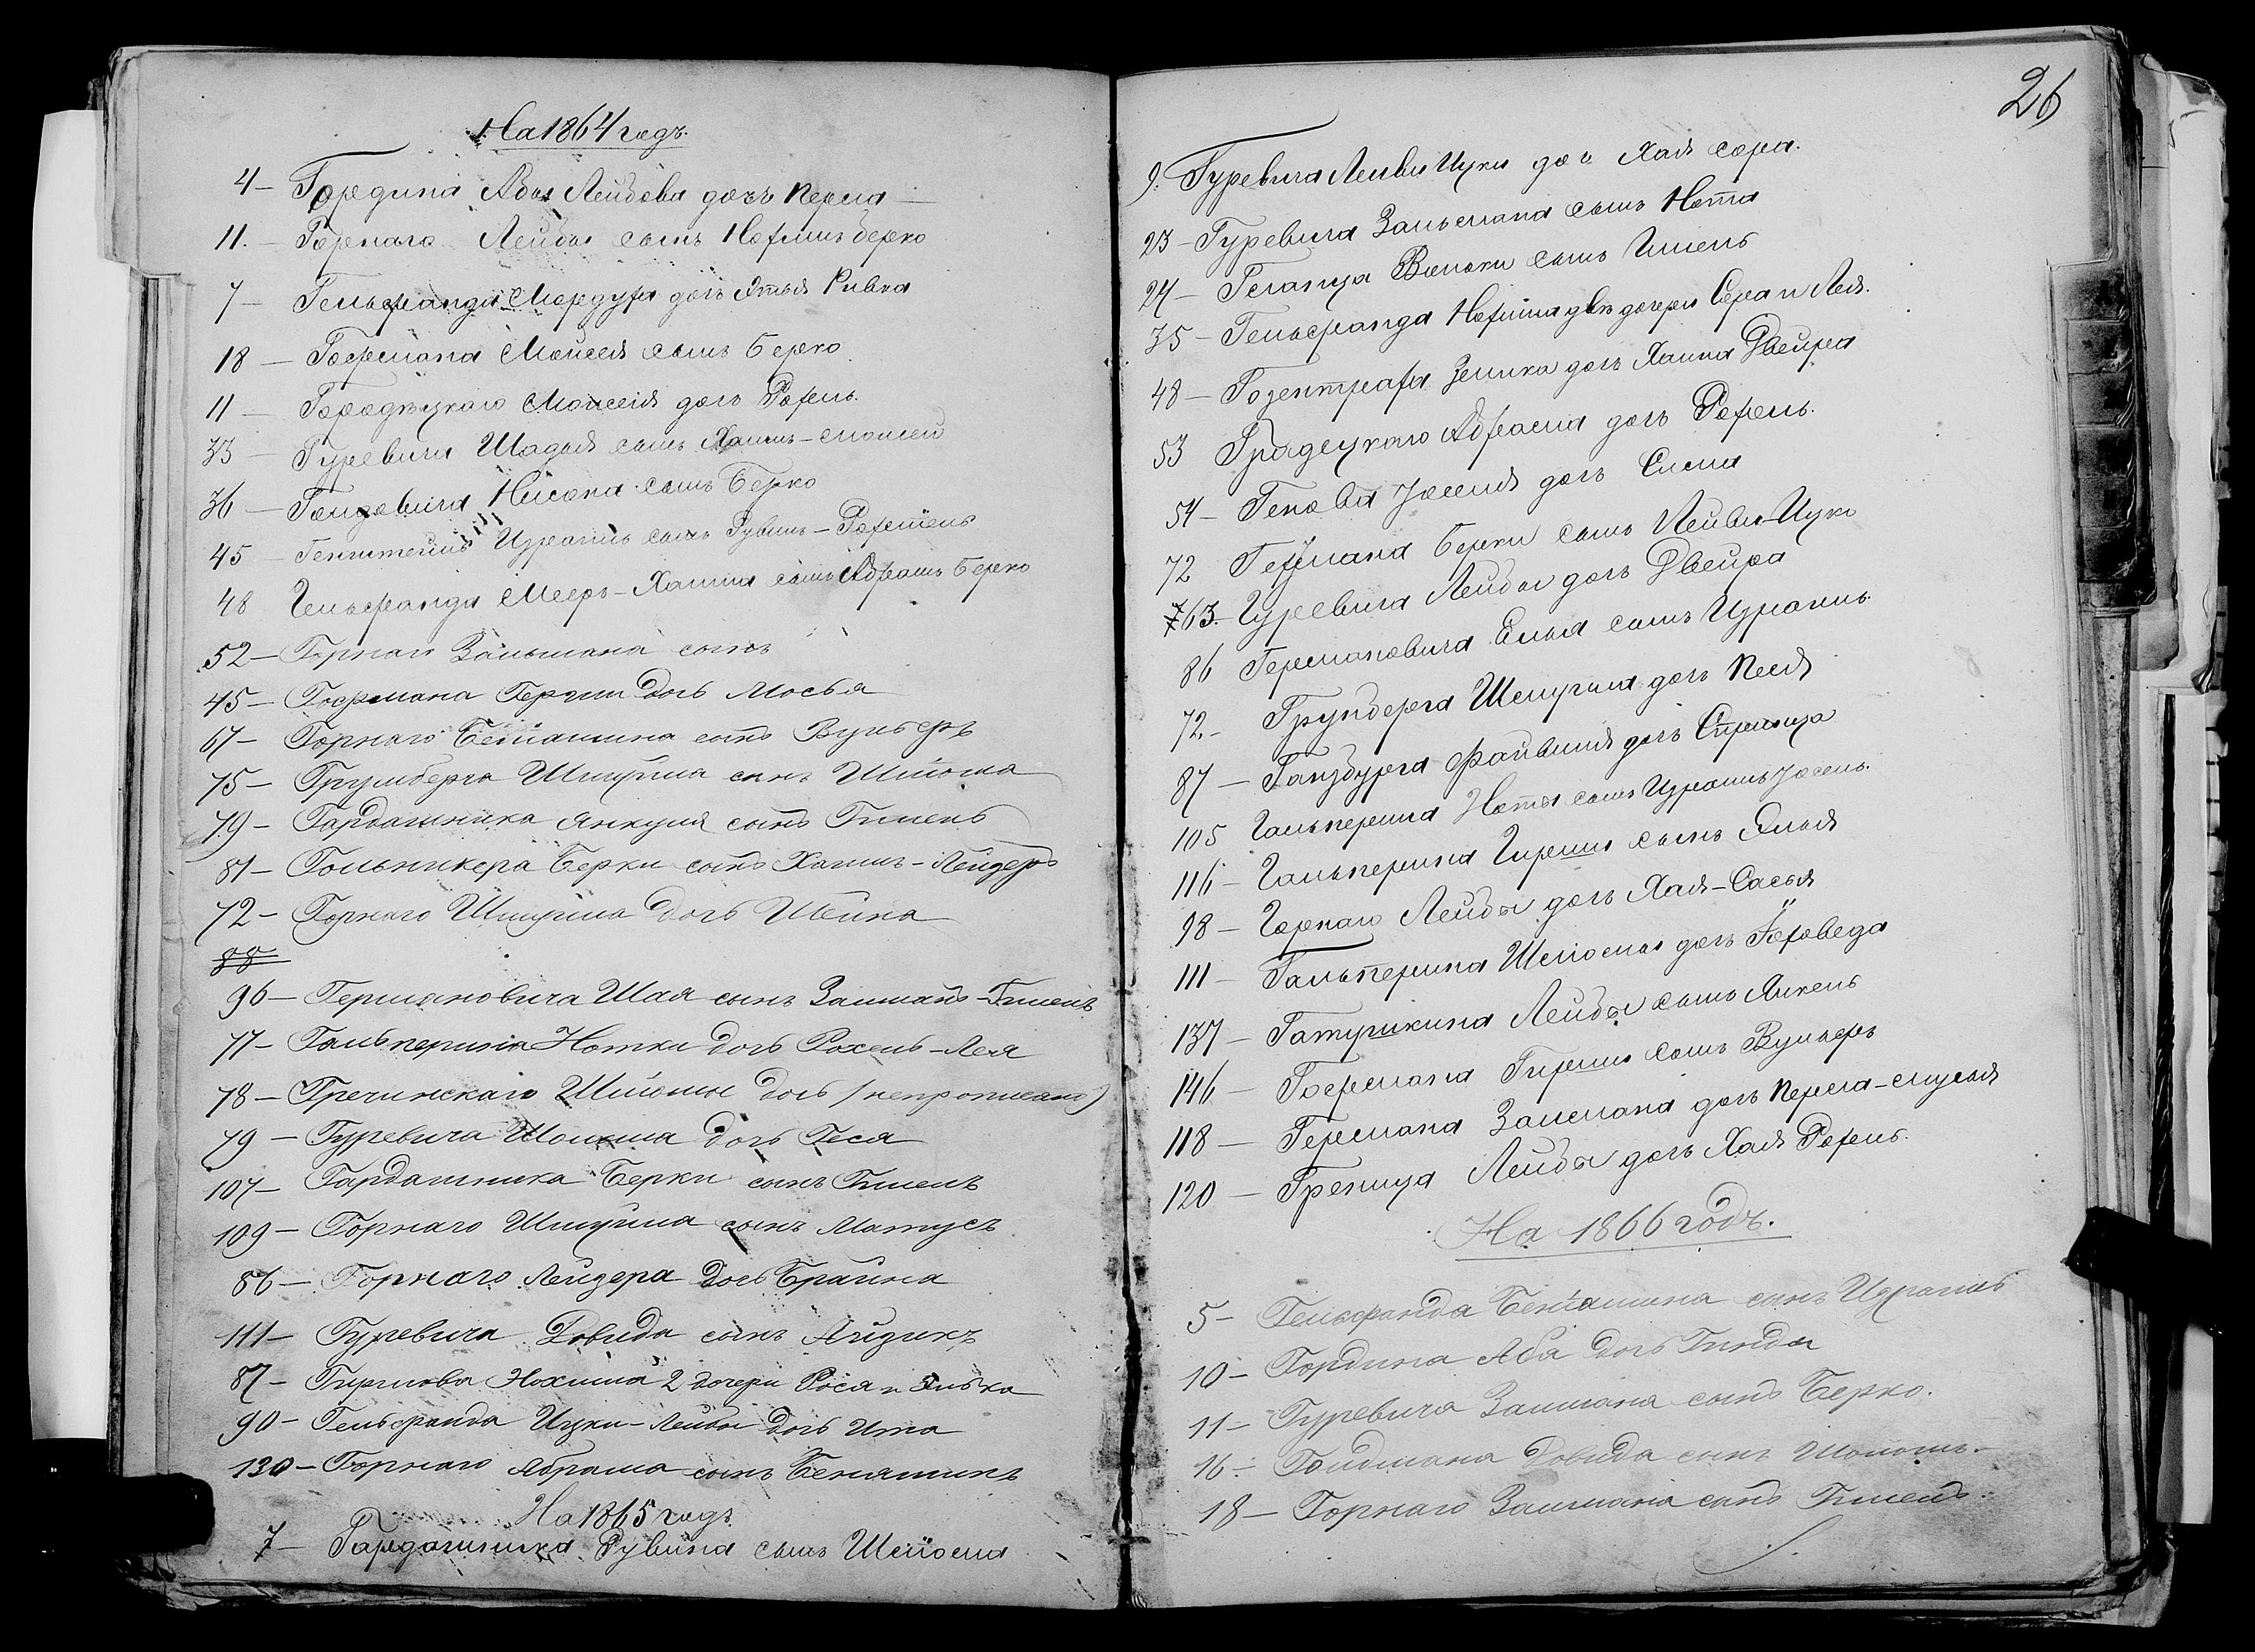 На 1864 годъ.
4 - Гордина Абы Лейбова дочь Перла
11. - Горнаго Лейбы сынъ Нохимъ берко
7 - Гельфанда Мордуха дочь Этья Ривка
18 - Гофмана Моисея сынъ Берко
11 - Городецкаго Моисея дочь Рохель.
33 - Гуревича Шадыя сынъ Хаимъ-
36 - Нисона сынъ Берко
45 - Генштейнъ Израиль сынъ Рувинъ-
48 Гельфанда Мееръ-Хаима сынъ Абрамъ Берко
52 - Горнаго Зальмана сынъ
45 - Гофмана Герши дочь Мосья
67 - Горнаго Беніамина сынъ Вульфъ
75 - Грумберга Шмуйла сынъ Шліома
79 - Гардашника Янкуля сынъ Гилель
81 - Гольникера Берки сынъ Хаимъ-Лейзеръ
72 - Горнаго Шмуйла дочь Шейна
88
96 - Германовича Шая сынъ Залманъ-Гилель
77 - Гальперина Нотки дочь Рохель-Лея
78 - Гречинскаго Шліомы дочь (непрописано)
79 - Гуревича Шолома дочь Геся
107 - Гардашника Берки сынъ Гилель
109 - Горнаго Шмуйла сынъ Матусъ
86 - Горнаго Лейзера дочь Брайна
111 - Гуревича Довида сынъ Айзикъ
87 - Гиршова Нохима 2 дочери Рося и Элька
90 - Гельфанда Ицки-Лейбы дочь Ита
130 - Горнаго Абрама сынъ Беняминъ
На 1865 годъ
7 - Гардашника Рувина сынъ Шліома
26
9. Гуревича Лейви Ицки доч Хая сора.
23 - Гуревича Зальмана сынъ Нота
24 - Вольки сынъ
35 - Гельфанда Нохима двѣ дочери Сора и Лея.
48 - Зелика дочь Ханна Двейра
53 Градецкаго Абрама дочь Рохель.
54 - Іоселя дочь Сима
72 Гофмана Берки сынъ Лейви-Ицко
763. Гуревича Лейбы дочь Двейра
86 Германовича Елья сынъ Израиль.
72. - Грунберга Шмуила дочь Песя
87 - Ганзбурга Файвиша дочь Стрынца
105 Гальперина Ноты сынъ Израиль Іосель.
116 - Гальперина Гирши сынъ Элья
98 - Горнаго Лейбы дочь Хая-Сосья
111 - Гальперина Шліомы дочь
137 - Гатушкина Лейбы сынъ Янкель
146 - Гофмана Гирши сынъ Вульфъ
118 - Германа Залмана дочь Перла-мусья
120 - Греница Лейбы дочь Хая Рохель.
На 1866 годъ.
5 - Гельфанда Беніамина сынъ Израиль
10 - Гордина Аба дочь Гинда
11 - Гуревича Залмана сынъ Берко.
16 - Голдмана Довида сынъ Шоломъ.
18 - Горнаго Залмана сынъ Гилель.